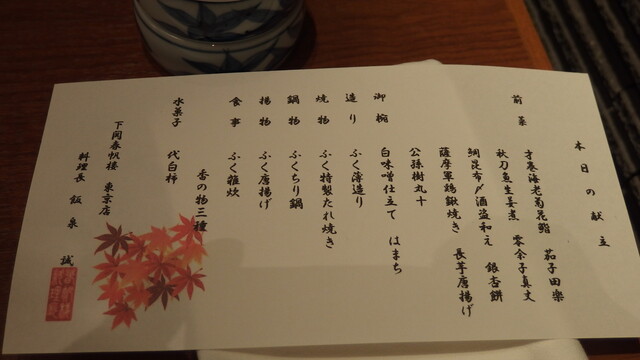 本日の献立
前菜 才巻海老菊昆鮨 茄子田楽
秋刀魚生姜煮 零余子真丈
鯛昆布〆酒盗和え 銀杏餅
薩摩軍鶏鍬焼き 長芋唐揚げ
公孫樹丸十
御椀 白味噌仕立て はまち
造り ふく薄造り
焼物 ふく特製たれ焼き
鍋物 ふくちり鍋
揚物 ふく唐揚げ
食事 ふく雑炊
香の物三種
水菓子 代白柿
下関春帆楼 東京店
料理長 飯泉 誠